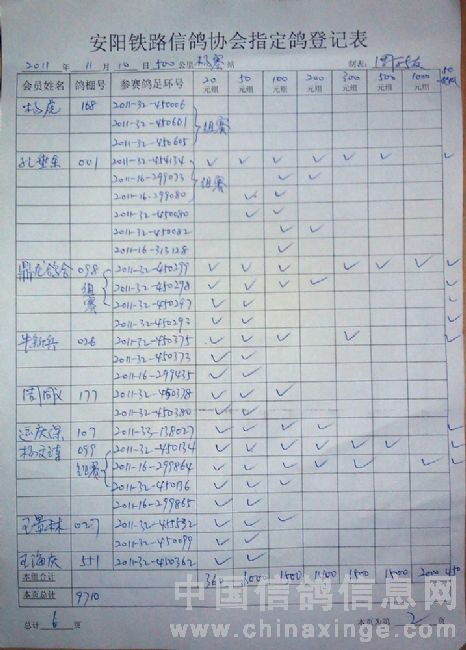 安阳铁路信鸽协会指定鸽登记表
2011 年 11 月 10 日 500 公里 站 制表:
会员姓名 鸽棚号 参赛鸽足环号 20元组 50元组 100元组 200元组 300元组 500元组 1000元组
杨虎 168 2011-32-450006
2011-32-450601 组赛
2011-32-450605
001 2011-32-454134 ✓ ✓ ✓ ✓ ✓ ✓ ✓
2011-16-299033 组赛 ✓ ✓
2011-16-299080 ✓ ✓
2011-32-450080 ✓ ✓
2011-32-450082 ✓ ✓
2011-16-313128 ✓
098 2011-32-450299 ✓ ✓ ✓ ✓ ✓ ✓ ✓
组赛 2011-32-450298 ✓ ✓ ✓ ✓
2011-32-450247 ✓ ✓
2011-32-450293 ✓ ✓
牛新兵 026 2011-32-450375 ✓ ✓ ✓ ✓
2011-32-450373 ✓ ✓
2011-16-299435 ✓ ✓
177 2011-32-450378 ✓ ✓ ✓
2011-32-450380 ✓ ✓
107 2011-33-138027 ✓ ✓ ✓ ✓
099 2011-32-450134 ✓ ✓ ✓ ✓ ✓ ✓
组赛 2011-16-299864 ✓ ✓ ✓ ✓ ✓ ✓ ✓
2011-32-450176 ✓ ✓
2011-16-299865 ✓ ✓
王景林 027 2011-32-455532 ✓ ✓
2011-32-450099 ✓ ✓
王海庆 551 2011-32-450362 ✓ ✓
本组合计 360 1000 1500 1500 2000 450
本页总计 9710
总计 6 页 本页为第 2 页
中国信鸽信息网
www.chinaxinge.com